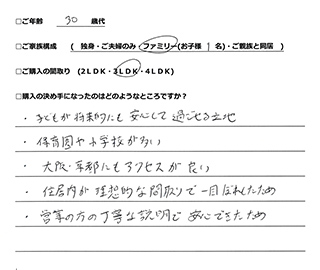 □ご年齢 30 歳代
□ご家族構成 ( 独身・ご夫婦のみ・ファミリー(お子様 1 名)・ご親族と同居 )
□ご購入の間取り (2LDK・3LDK・4LDK)
□購入の決め手になったのはどのようなところですか?
・子どもが将来的にも安心して過ごせる立地
・保育園や小学校が多い
・大阪・京都にもアクセスが良い
・住居内が理想的な間取りで一目ぼれしたため
・営業の方の丁寧な説明で安心できたため